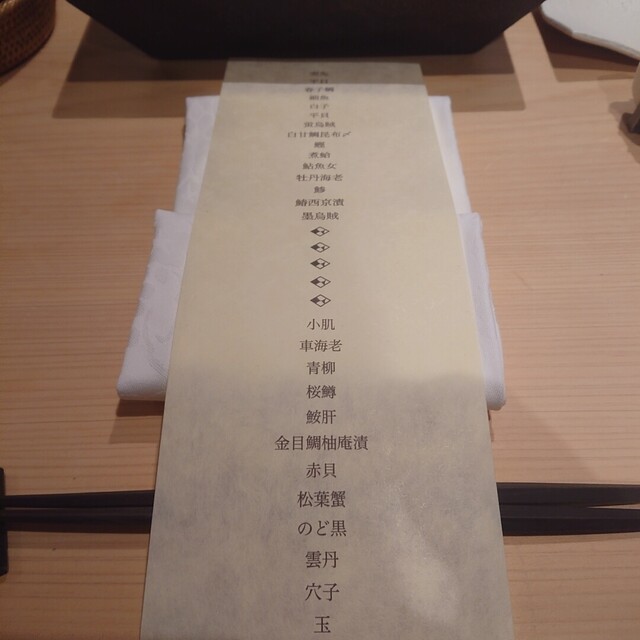 春子鯛
白子
平貝
墨烏賊
白甘鯛昆布〆
鰹
煮蛤
鮎魚女
牡丹海老
鯵
鰆西京漬
墨烏賊
小肌
車海老
青柳
桜鱒
鮟肝
金目鯛柚庵漬
赤貝
松葉蟹
のど黒
雲丹
穴子
玉